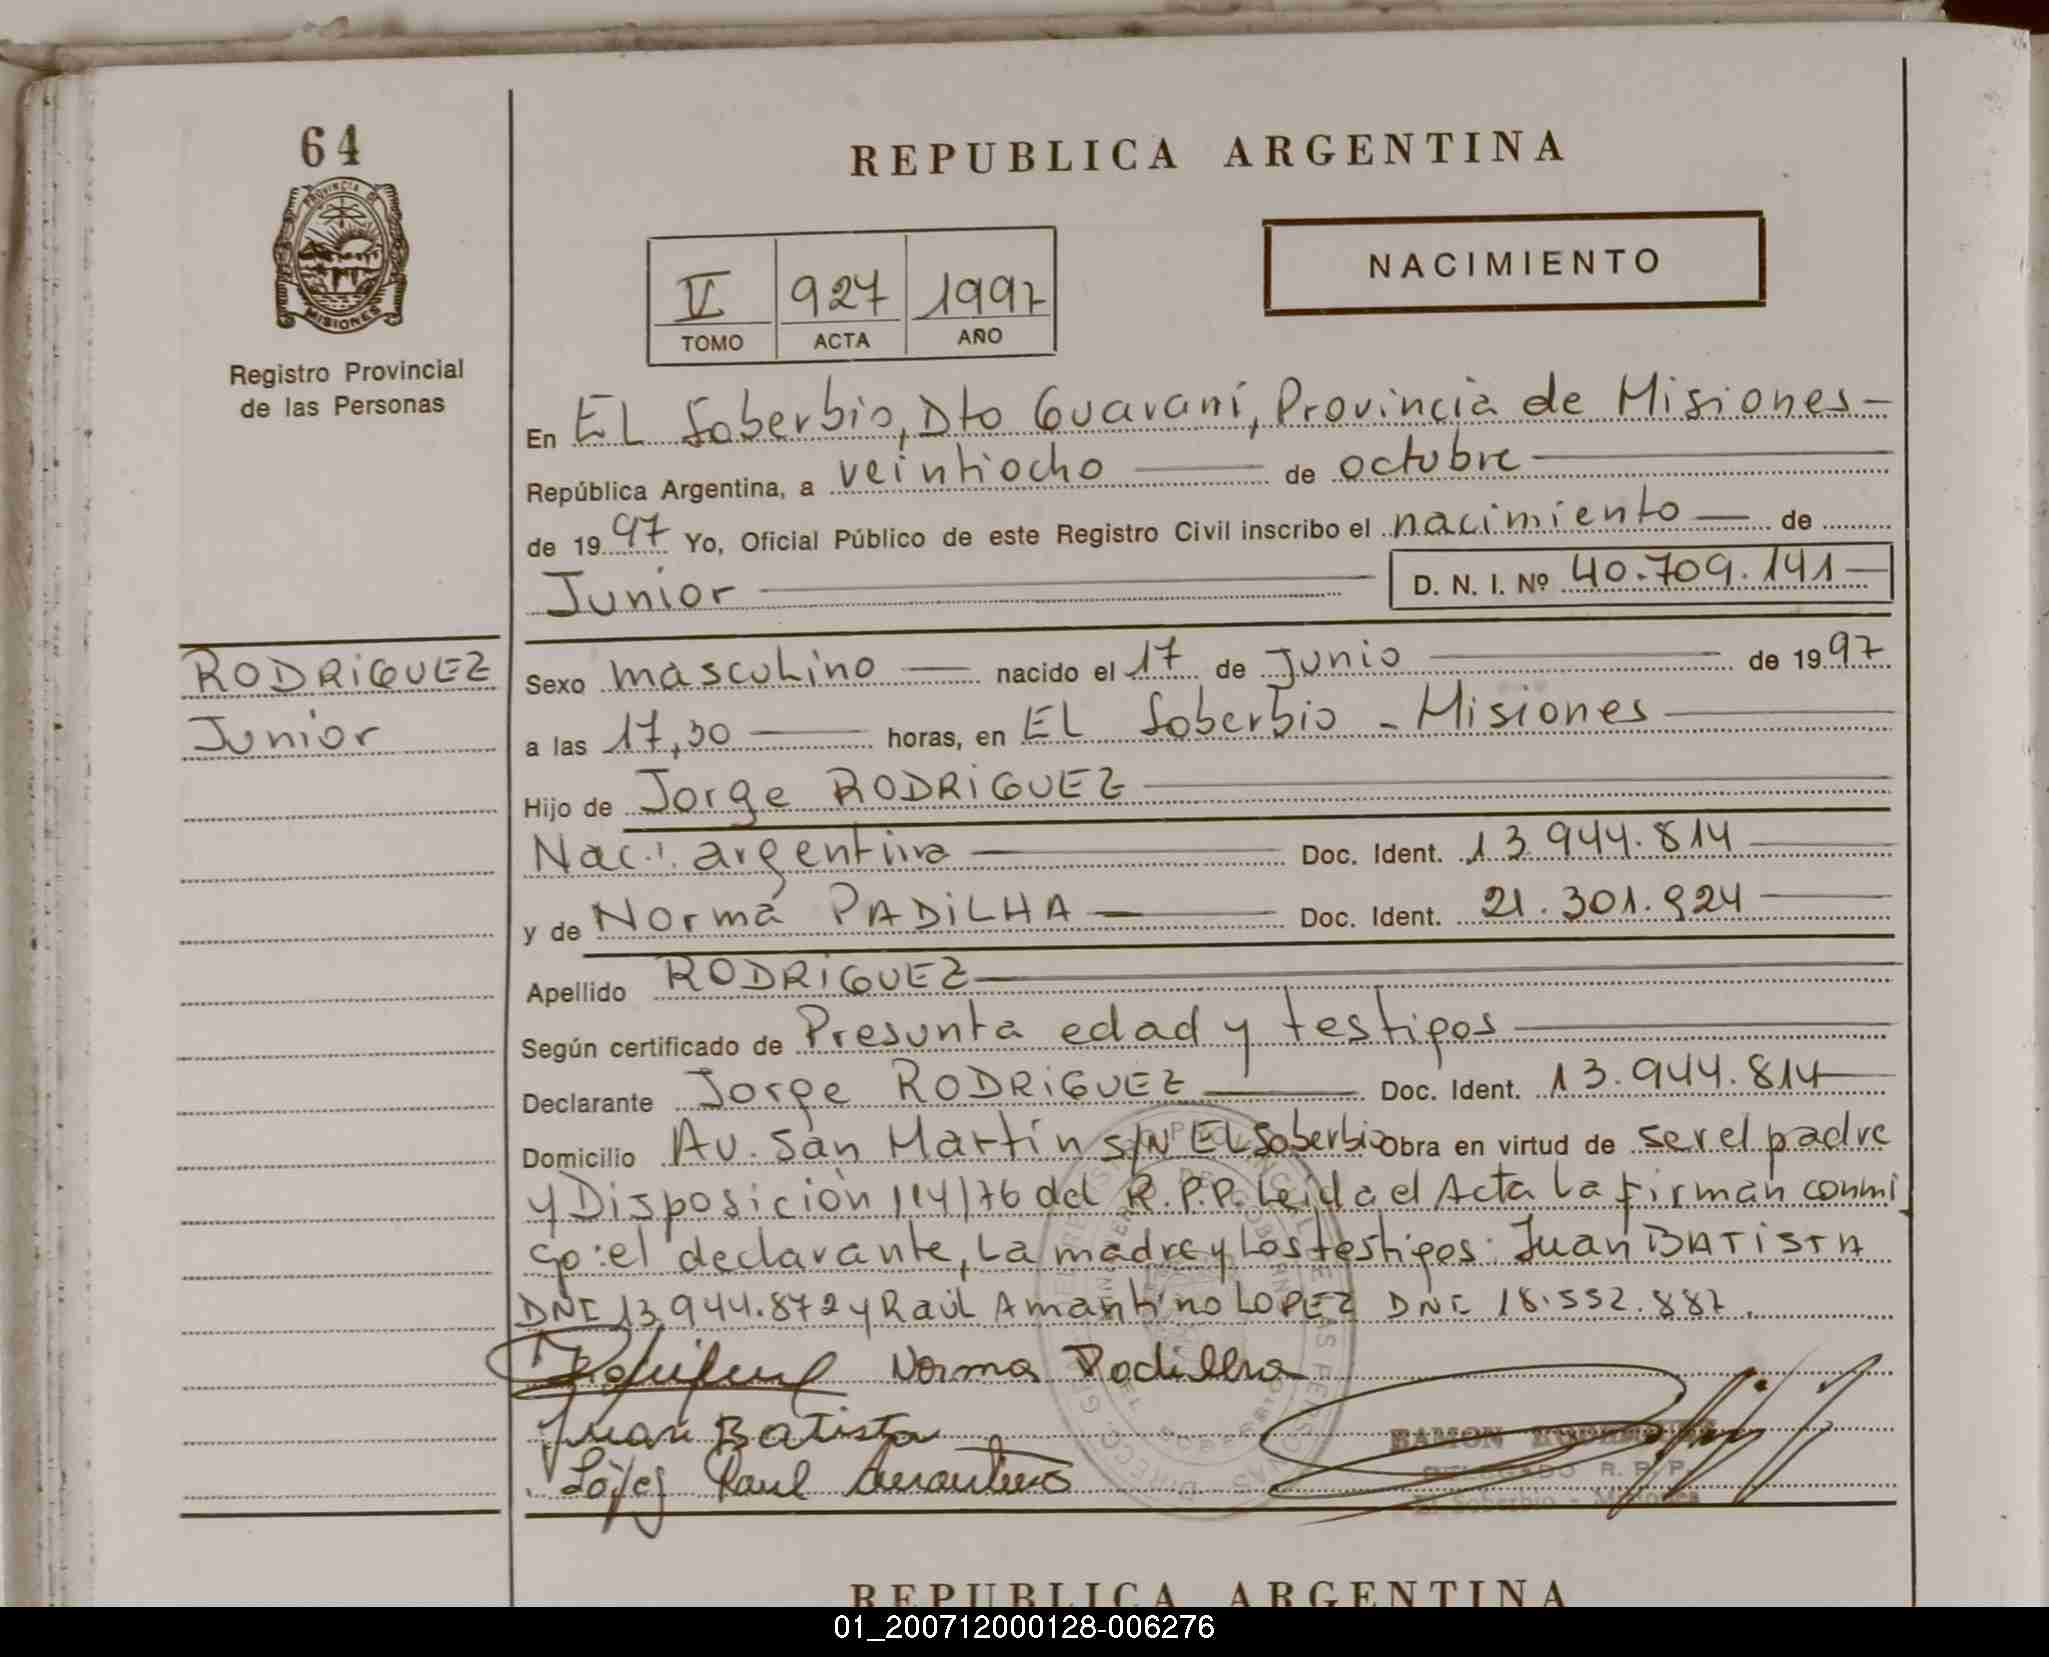 64
PROVINCIA DE
MISIONES
Registro Provincial
de las Personas
REPUBLICA ARGENTINA
NACIMIENTO
V 927 1997
TOMO ACTA AÑO
En EL Soberbio, Dto Guaraní, Provincia de Misiones
República Argentina, a veintiocho de octubre
de 1997 Yo, Oficial Público de este Registro Civil inscribo el nacimiento de
Junior D. N. I. Nº 40.709.141
RODRIGUEZ
Junior
Sexo masculino nacido el 17 de Junio de 1997
a las 17,30 horas, en EL Soberbio - Misiones
Hijo de Jorge RODRIGUEZ
Nac.: argentina Doc. Ident. 13.944.814
y de Norma PADILHA Doc. Ident. 21.301.924
Apellido RODRIGUEZ
Según certificado de Presunta edad y testigos
Declarante Jorge RODRIGUEZ Doc. Ident. 13.944.814
Domicilio Av. San Martín s/N EL Soberbio Obra en virtud de ser el padre
y Disposición 114/76 del R.P.P. Leída el Acta la firman conmi
go: el declarante, La madre y Los testigos: Juan BATISTA
DNI 13.944.872 y Raúl Amantino LOPEZ DNI 18.552.887.
Norma Padilha
Juan Batista
López Raul Amantino
RAMON
DELEGADO R. P. P.
El Soberbio - Misiones
REPUBLICA ARGENTINA
01_200712000128-006276